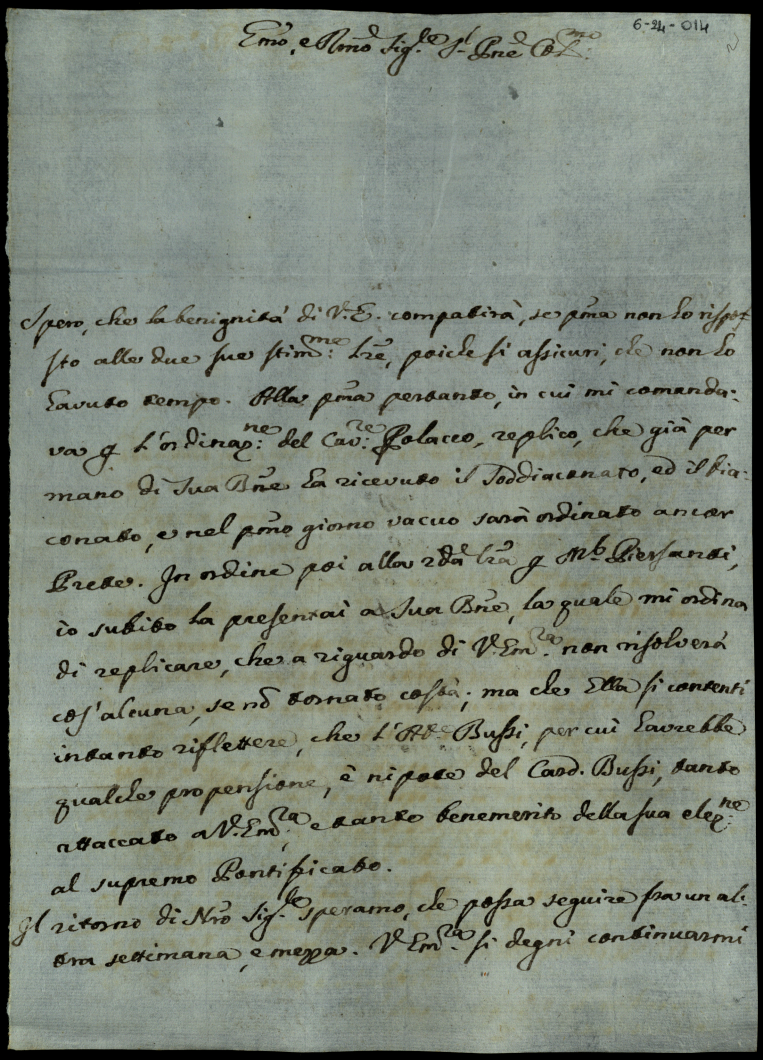 6-24-014
Emo, e Rmo Sig.le S.r Pne Col.mo
Spero, che la benignità di V.E. compatirà, se pma non ho rispo-
sto alle due sue stim.me Lre, poiche si assicuri, che non ho
havuto tempo. Alla pma pertanto, in cui mi comanda-
va p l'ordinaz.ne del Cav.re Polacco, replico, che già per
mano di Sua Bne ha ricevuto il Soddiaconato, ed il Dia-
conato, e nel pmo giorno vacuo sarà ordinato ancor
Prete. In ordine poi alla 2da Lra p M.r Piersanti,
io subito la presentai a Sua Bne, la quale mi ordina
di replicare, che a riguardo di V.Em.za non risolverà
cos'alcuna, se no tornato costà; ma che Ella si contenti
intanto riflettere, che l'Ab.e Bussi, per cui havrebbe
qualche propensione, è nipote del Card. Bussi, tanto
attaccato a V.Em.za, e tanto benemerito della sua elez.ne
al supremo Pontificato.
Il ritorno di Nro Sig.le speramo, che possa seguire fra un al-
tra settimana, e mezza. V.Em.za si degni continuarmi